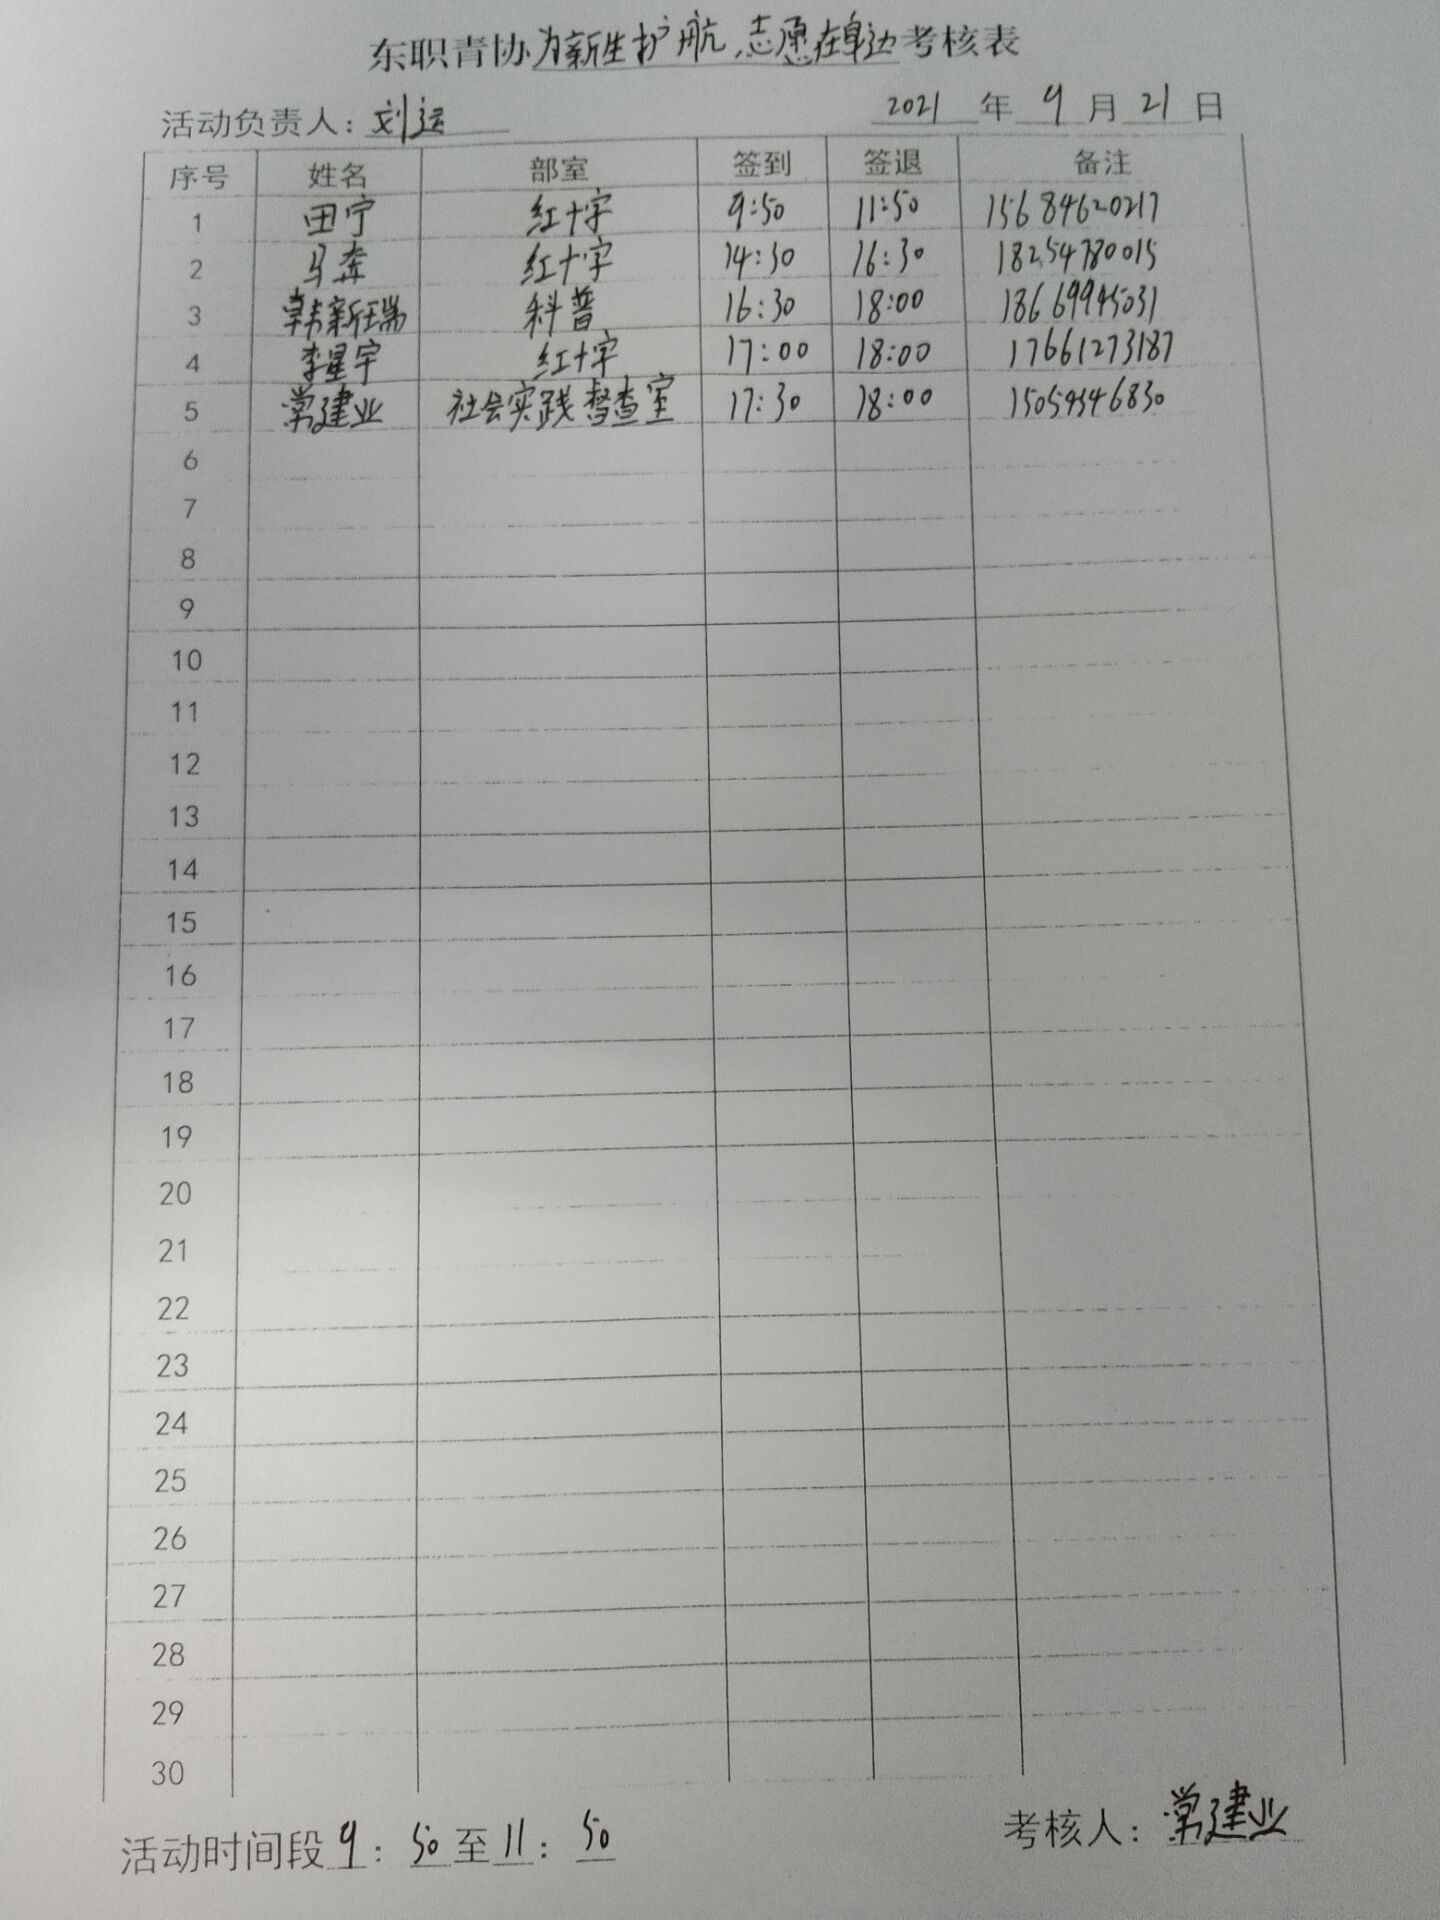 东职青协为新生护航,志愿在身边考核表
活动负责人:刘运 2021 年 9 月 21 日
序号 姓名 部室 签到 签退 备注
1 田宁 红十字 9:50 11:50 15684620217
2 马奔 红十字 14:30 16:30 18254780015
3 韩新瑞 科普 16:30 18:00 18669945031
4 李星宇 红十字 17:00 18:00 17661273187
5 常建业 社会实践督查室 17:30 18:00
6
7
8
9
10
11
12
13
14
15
16
17
18
19
20
21
22
23
24
25
26
27
28
29
30
活动时间段 9:50 至 11:50 考核人:常建业